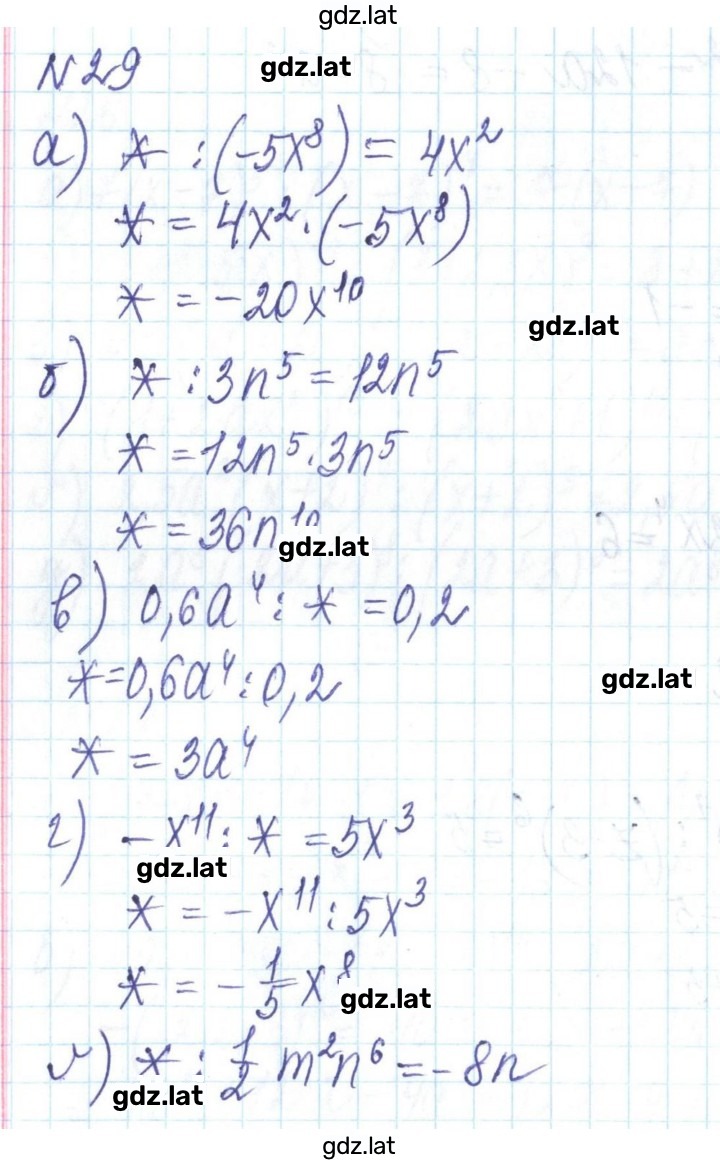 gdz.lat
N 29
gdz.lat
а) * : (-5x⁸) = 4x²
* = 4x² · (-5x⁸)
* = -20x¹⁰
gdz.lat
б) * : 3n⁵ = 12n⁵
* = 12n⁵ · 3n⁵
* = 36n¹⁰
gdz.lat
в) 0,6a⁴ : * = 0,2
* = 0,6a⁴ : 0,2
gdz.lat
* = 3a⁴
г) -x¹¹ : * = 5x³
gdz.lat
* = -x¹¹ : 5x³
* = -1/5 x⁸
gdz.lat
* : 1/2 m²n⁶ = -8n
gdz.lat
gdz.lat